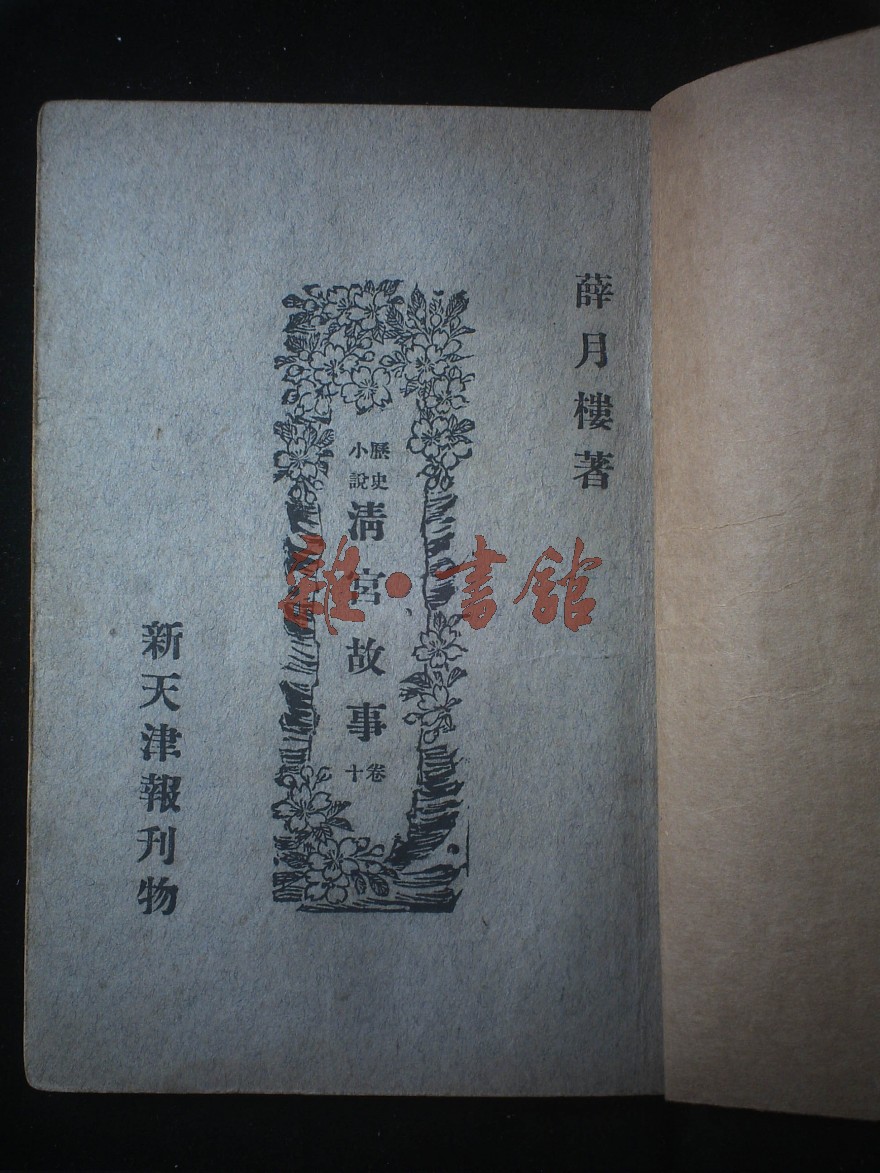 薛月樓著
歷史小說
清宮故事
卷十
新天津報刊物
雜·書館